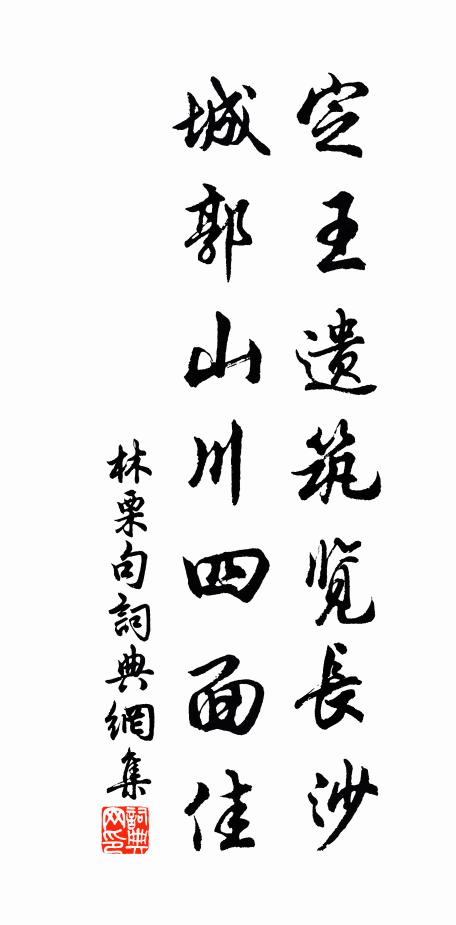 定王遗筑览長沙
城郭山川四面佳
林栗句詞典網集
詞典网印